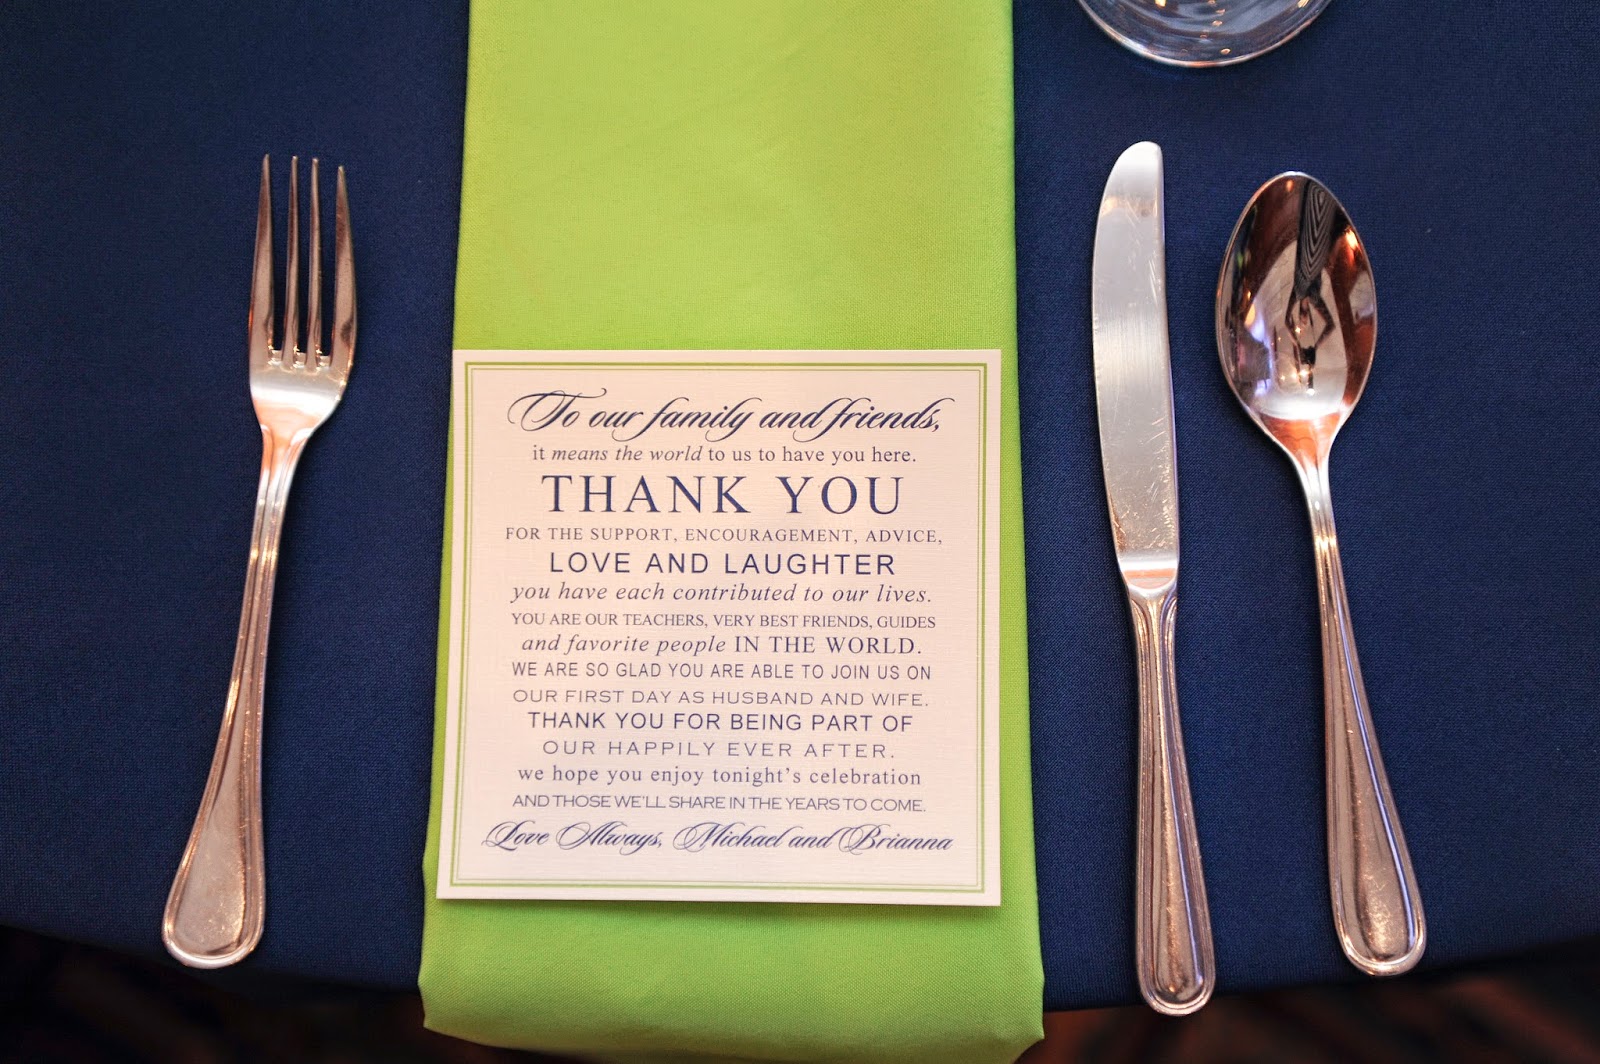 To our family and friends,
it means the world to us to have you here.
THANK YOU
FOR THE SUPPORT, ENCOURAGEMENT, ADVICE,
LOVE AND LAUGHTER
you have each contributed to our lives.
YOU ARE OUR TEACHERS, VERY BEST FRIENDS, GUIDES
and favorite people IN THE WORLD.
WE ARE SO GLAD YOU ARE ABLE TO JOIN US ON
OUR FIRST DAY AS HUSBAND AND WIFE.
THANK YOU FOR BEING PART OF
OUR HAPPILY EVER AFTER.
we hope you enjoy tonight's celebration
AND THOSE WE'LL SHARE IN THE YEARS TO COME.
Love Always, Michael and Brianna